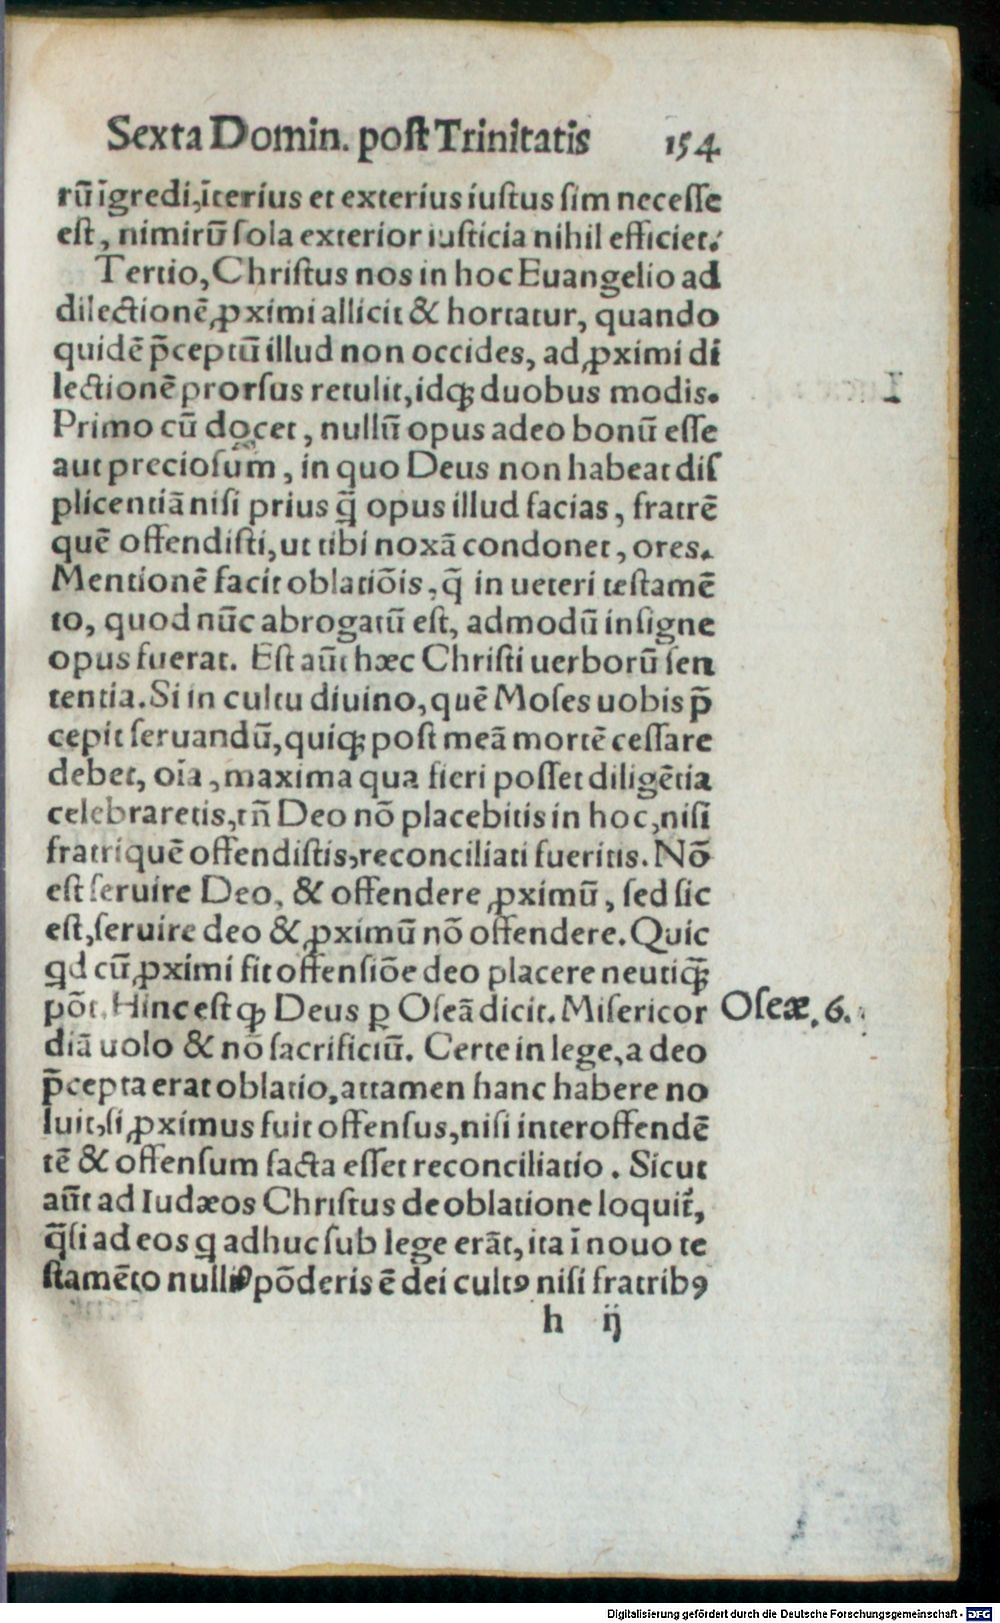 Sexta Domin. post Trinitatis 154
rū īgredi, īterius et exterius iustus sim necesse
est, nimirū sola exterior iusticia nihil efficiet.
Tertio, Christus nos in hoc Euangelio ad
dilectionē ꝓximi allicit & hortatur, quando
quidē p̄ceptū illud non occides, ad ꝓximi di
lectionē prorsus retulit, idqꝫ duobus modis.
Primo cū docet, nullū opus adeo bonū esse
aut preciosum, in quo Deus non habeat dis
plicentiā nisi prius q̄ opus illud facias, fratrē
quē offendisti, ut tibi noxā condonet, ores.
Mentionē facit oblatiōis, q̄ in ueteri testamē
to, quod nūc abrogatū est, admodū insigne
opus fuerat. Est aūt hæc Christi uerborū sen
tentia. Si in cultu diuino, quē Moses uobis p̄
cepit seruandū, quiqꝫ post meā mortē cessare
debet, oīa, maxima qua fieri posset diligētia
celebraretis, tñ Deo nō placebitis in hoc, nisi
fratri quē offendistis, reconciliati fueritis. Nō
est seruire Deo, & offendere ꝓximū, sed sic
est, seruire deo & ꝓximū nō offendere. Quic
qd cū ꝓximi fit offensiōe deo placere neutiqꝫ̄
pōt. Hinc est ꝙ Deus ꝑ Oseā dicit. Misericor
Oseæ. 6.
diā uolo & nō sacrificiū. Certe in lege, a deo
p̄cepta erat oblatio, attamen hanc habere no
luit, si ꝓximus fuit offensus, nisi inter offendē
tē & offensum facta esset reconciliatio. Sicut
aūt ad Iudæos Christus de oblatione loquit̄,
q̄si ad eos q adhuc sub lege erāt, ita ī nouo te
stamēto nulliꝰ pōderis ē dei cultꝰ nisi fratribꝰ
h ij
Digitalisierung gefördert durch die Deutsche Forschungsgemeinschaft - DFG